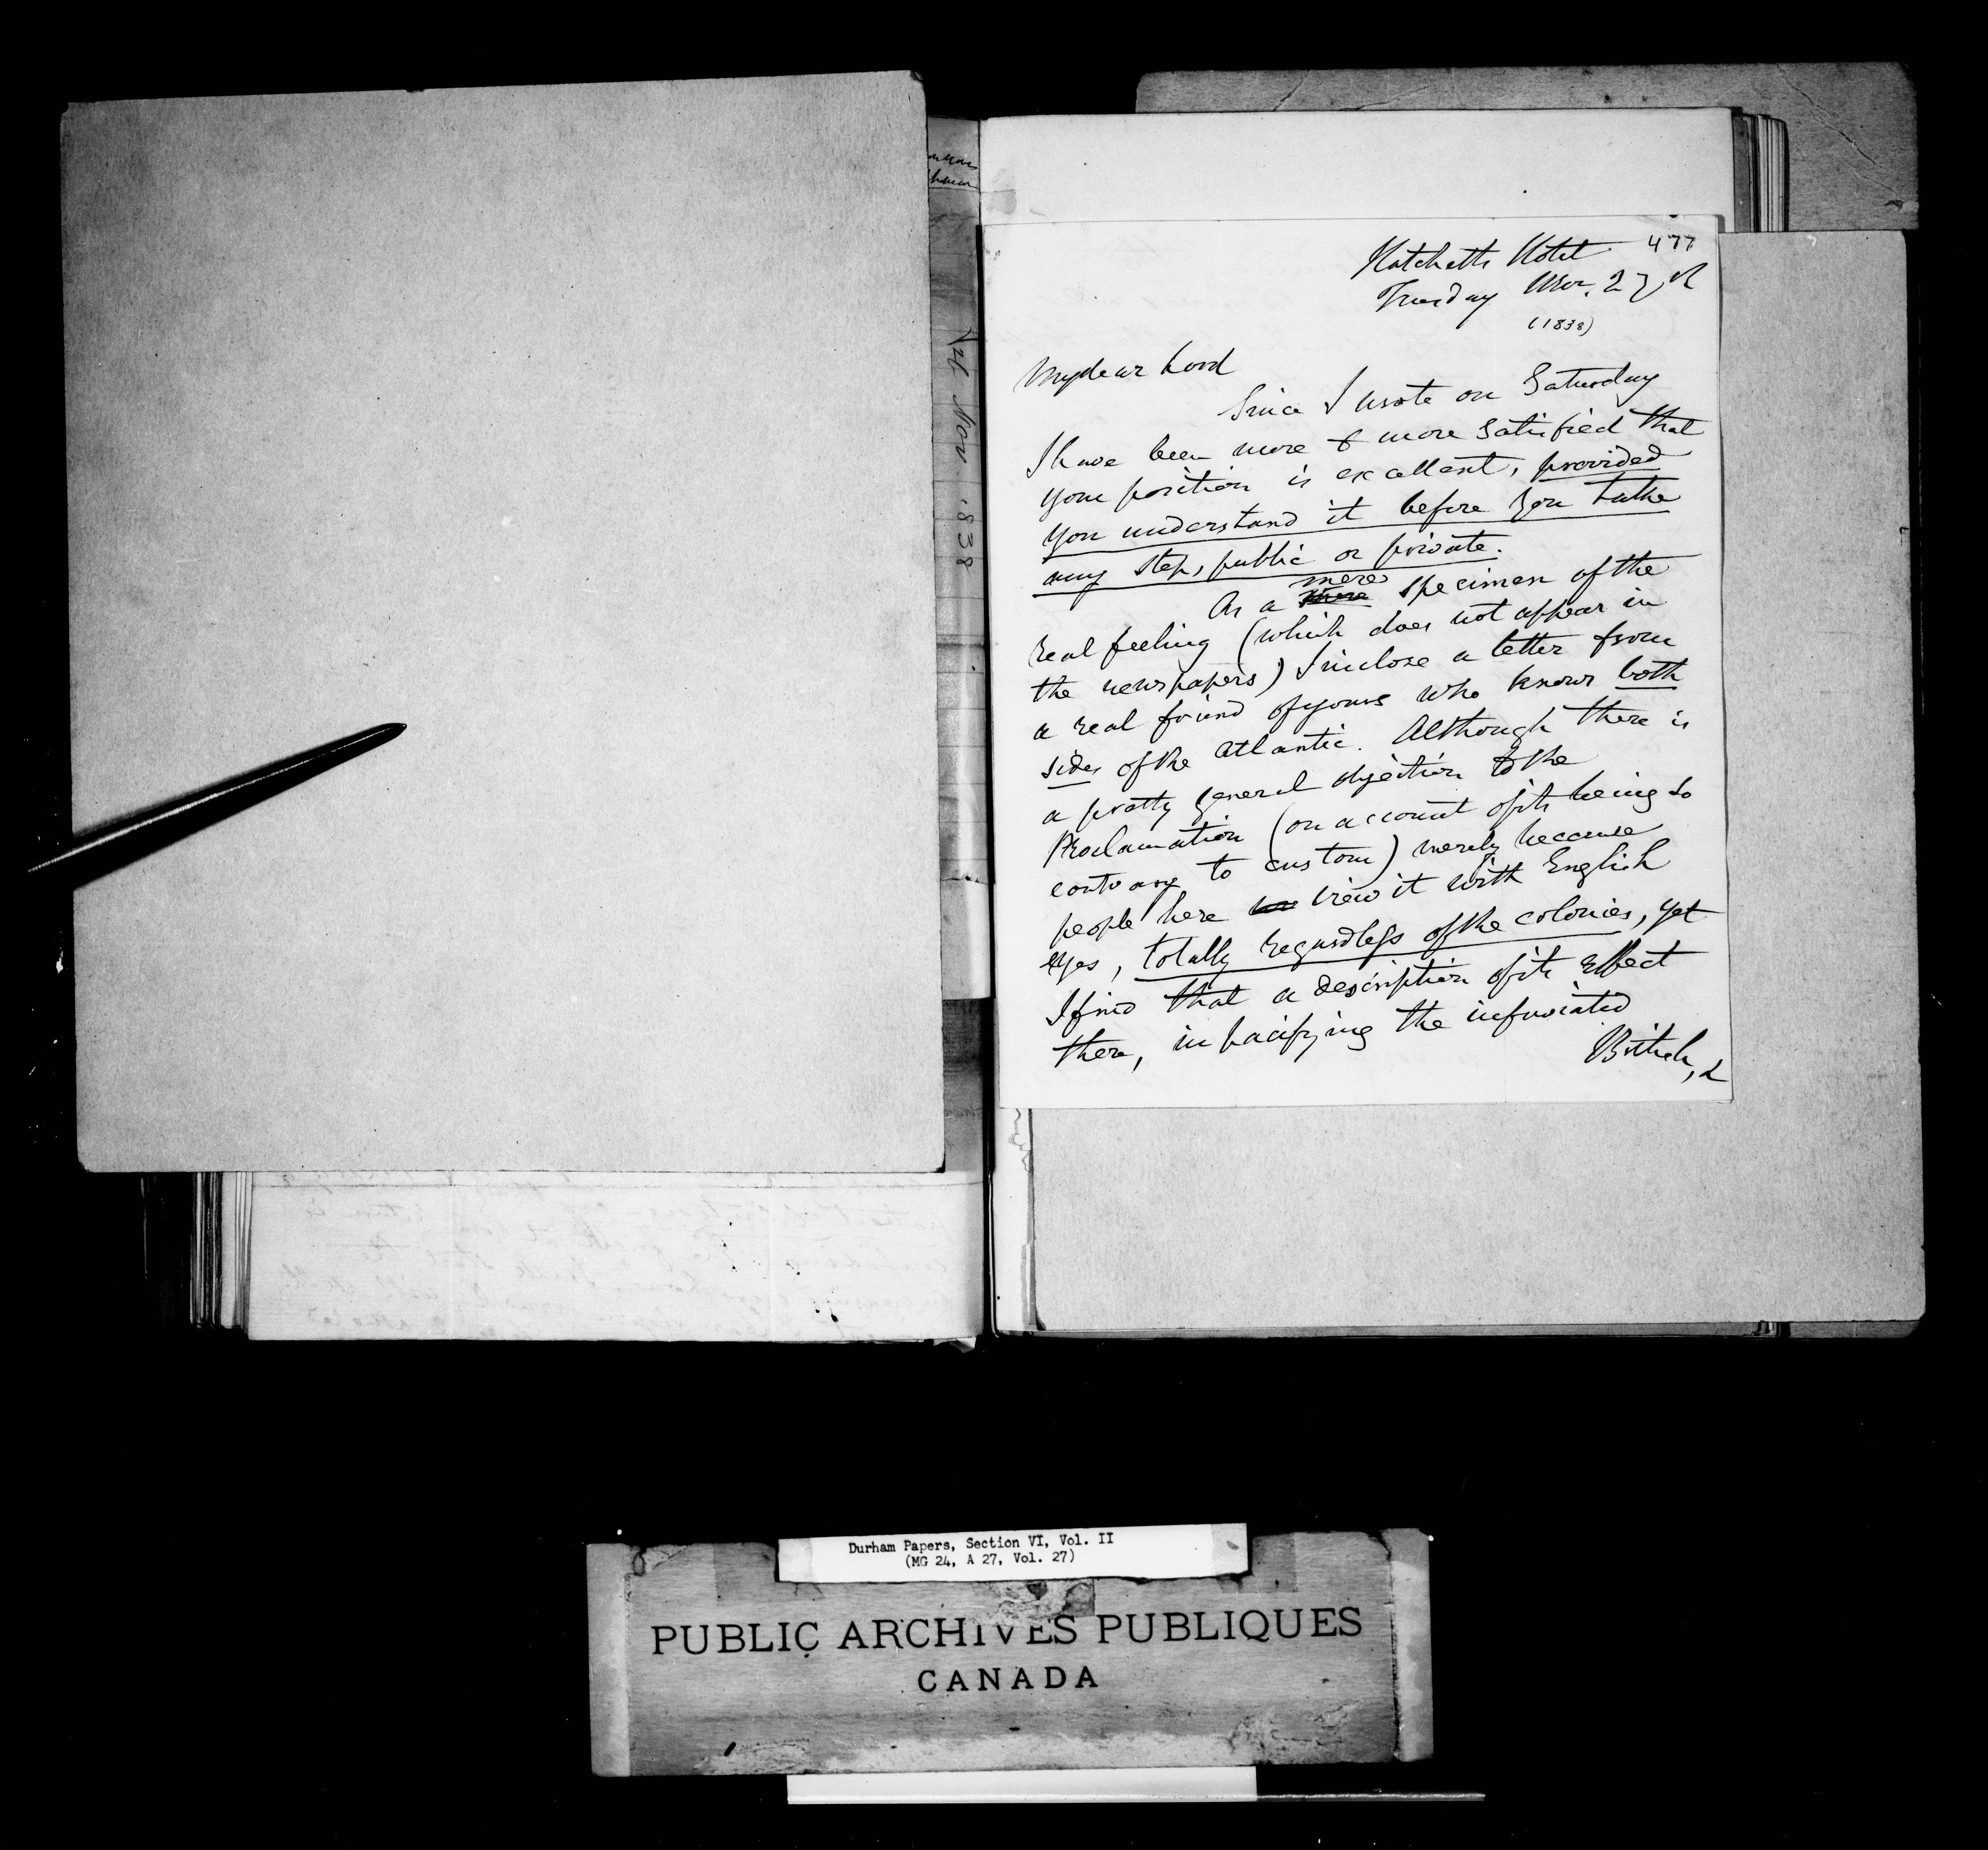 477
Hatchetts Hotel
Tuesday Nov. 27th
(1838)
My dear Lord
Since I wrote on Saturday
I have been more & more satisfied that
your position is excellent, provided
you understand it before you take
any step, public or private.
As a mere specimen of the
real feeling (which does not appear in
the newspapers) I inclose a letter from
a real friend of yours who knows both
sides of the Atlantic. Although there is
a pretty general objection to the
Proclamation (on account of its being so
contrary to custom) merely because
people here view it with English
eyes, totally regardless of the colonies, yet
I find that a description of its effect
there, in pacifying the infuriated
British, &
Nov 1838
Durham Papers, Section VI, Vol. II
(MG 24, A 27, Vol. 27)
PUBLIC ARCHIVES PUBLIQUES
CANADA